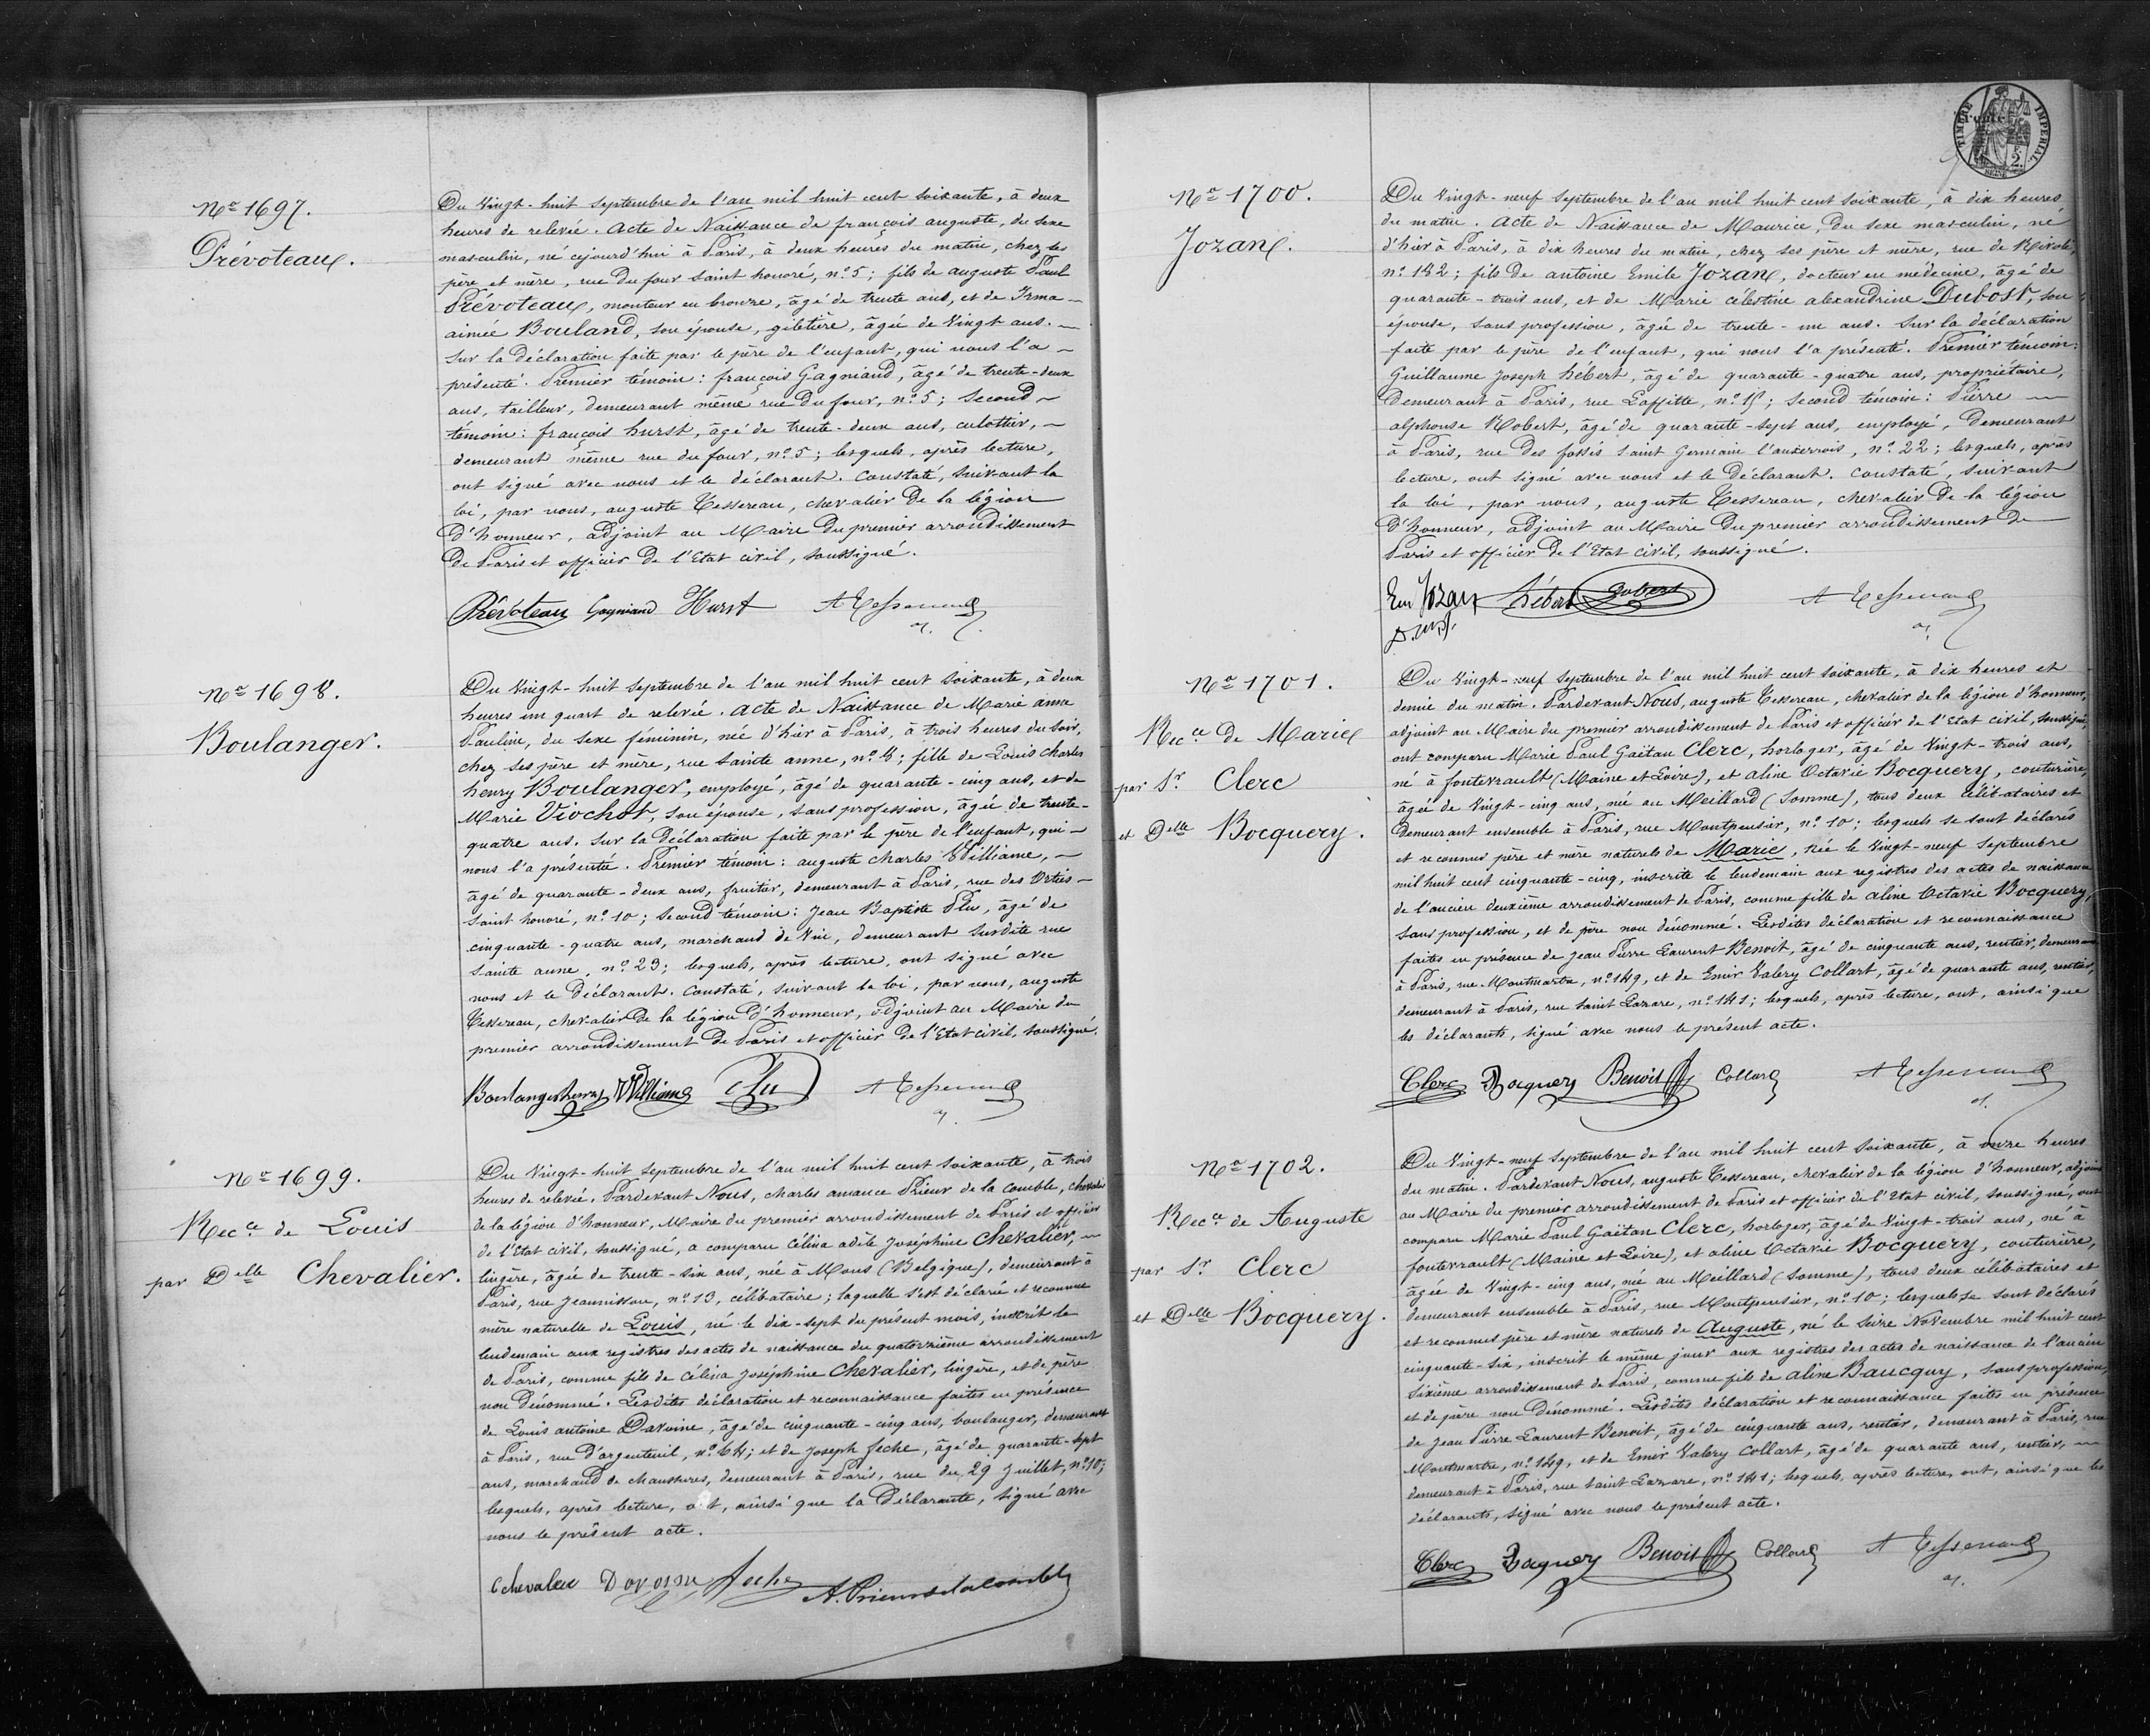 Nº 1697.
Prévoteaux.
Du Vingt-huit Septembre de l'an mil huit cent soixante, à deux
heures de relevée. Acte de Naissance de françois auguste, du sexe
masculin, né cejourd'hui à Paris, à deux heures du matin, chez ses
père et mère, rue du four Saint honoré, nº 5; fils de auguste Paul
Prévoteaux, monteur en bronze, âgé de trente ans, et de Irma
aimée Bouland, son épouse, giletière, âgée de Vingt ans.
Sur la déclaration faite par le père de l'enfant, qui nous l'a
présenté. Premier témoin: françois Gagniand, âgé de trente-deux
ans, tailleur, demeurant même rue du four, nº 5; Second
témoin: françois hurst, âgé de trente-deux ans, culottier,
demeurant même rue du four, nº 5; lesquels, après lecture,
ont signé avec nous et le déclarant. Constaté, suivant la
loi, par nous, auguste Tessereau, chevalier de la légion
d'honneur, adjoint au Maire du premier arrondissement
de Paris et officier de l'Etat civil, soussigné.
Prévoteau Gagniand Hurst A Tessereau
Nº 1698.
Boulanger.
Du Vingt-huit Septembre de l'an mil huit cent soixante, à deux
heures un quart de relevée. Acte de Naissance de Marie anne
Pauline, du sexe féminin, née d'hier à Paris, à trois heures du soir,
chez ses père et mère, rue Sainte anne, nº 4; fille de Louis Charles
henry Boulanger, employé, âgé de quarante-cinq ans, et de
Marie Viochot, son épouse, sans profession, âgée de trente-
quatre ans. Sur la déclaration faite par le père de l'enfant, qui
nous l'a présentée. Premier témoin: auguste Charles Williame,
âgé de quarante-deux ans, fruitier, demeurant à Paris, rue des Orties
Saint honoré, nº 10; Second témoin: Jean Baptiste Plu, âgé de
cinquante-quatre ans, marchand de Vin, demeurant susdite rue
Sainte anne, nº 23; lesquels, après lecture, ont signé avec
nous et le déclarant. Constaté, suivant la loi, par nous, auguste
Tessereau, chevalier de la légion d'honneur, adjoint au Maire du
premier arrondissement de Paris et officier de l'Etat civil, soussigné.
Boulanger henry Williame Plu A Tessereau
Nº 1699.
Recce de Louis
par Delle Chevalier.
Du Vingt-huit Septembre de l'an mil huit cent soixante, à trois
heures de relevée. Pardevant Nous, Charles amance Prieur de la Comble, chevalier
de la légion d'honneur, Maire du premier arrondissement de Paris et officier
de l'Etat civil, soussigné, a comparu Célina adèle Joséphine Chevalier,
lingère, âgée de trente-six ans, née à Mons (Belgique), demeurant à
Paris, rue Jeannisson, nº 13, célibataire; laquelle s'est déclarée et reconnue
mère naturelle de Louis, né le dix-sept du présent mois, inscrit le
lendemain aux registres des actes de naissance du quatorzième arrondissement
de Paris, comme fils de Célina Joséphine Chevalier, lingère, et de père
non dénommé. Lesdites déclaration et reconnaissance faites en présence
de Louis antoine Davoine, âgé de cinquante-cinq ans, boulanger, demeurant
à Paris, rue d'argenteuil, nº 64; et de Joseph feche, âgé de quarante-sept
ans, marchand de chaussures, demeurant à Paris, rue du 29 Juillet, nº 10;
lesquels, après lecture, ont, ainsi que la déclarante, signé avec
nous le présent acte.
C Chevalier Davoine feche A. Prieur de la Comble
TIMBRE IMPERIAL
2.
Nº 1700.
Jozan.
Du Vingt-neuf Septembre de l'an mil huit cent soixante, à dix heures
du matin. Acte de Naissance de Maurice, du sexe masculin, né
d'hier à Paris, à dix heures du matin, chez ses père et mère, rue de Rivoli,
nº 182; fils de antoine Emile Jozan, docteur en médecine, âgé de
quarante-trois ans, et de Marie célestine alexandrine Dubost, son
épouse, sans profession, âgée de trente-un ans. Sur la déclaration
faite par le père de l'enfant, qui nous l'a présenté. Premier témoin:
Guillaume Joseph hébert, âgé de quarante-quatre ans, propriétaire,
demeurant à Paris, rue Laffitte, nº 15; second témoin: Pierre
alphonse Robert, âgé de quarante-sept ans, employé, demeurant
à Paris, rue des fossés Saint Germain l'auxerrois, nº 22; lesquels, après
lecture, ont signé avec nous et le déclarant. Constaté, suivant
la loi, par nous, auguste Tessereau, chevalier de la légion
d'honneur, adjoint au Maire du premier arrondissement de
Paris et officier de l'Etat civil, soussigné.
Em Jozan hébert Robert A Tessereau
Nº 1701.
Recce de Marie
par Sr. Clerc
et Delle Bocquery.
Du Vingt-neuf Septembre de l'an mil huit cent soixante, à dix heures et
demie du matin. Pardevant Nous, auguste Tessereau, chevalier de la légion d'honneur,
adjoint au Maire du premier arrondissement de Paris et officier de l'Etat civil, soussigné,
ont comparu Marie Paul Gaëtan Clerc, horloger, âgé de Vingt-trois ans,
né à fontevrault (Maine et Loire), et aline Octavie Bocquery, couturière,
âgée de Vingt-cinq ans, née au Meillard (Somme), tous deux célibataires et
demeurant ensemble à Paris, rue Montpensier, nº 10; lesquels se sont déclarés
et reconnus père et mère naturels de Marie, née le Vingt-neuf Septembre
mil huit cent cinquante-cinq, inscrite le lendemain aux registres des actes de naissance
de l'ancien deuxième arrondissement de Paris, comme fille de aline Octavie Bocquery,
sans profession, et de père non dénommé. Lesdites déclaration et reconnaissance
faites en présence de Jean Pierre Laurent Benoit, âgé de cinquante ans, rentier, demeurant
à Paris, rue Montmartre, nº 149, et de Emir Valery Collart, âgé de quarante ans, rentier,
demeurant à Paris, rue Saint Lazare, nº 141; lesquels, après lecture, ont, ainsi que
les déclarants, signé avec nous le présent acte.
Clerc Bocquery Benoit Collard A Tessereau
Nº 1702.
Recce de Auguste
par Sr. Clerc
et Delle Bocquery.
Du Vingt-neuf Septembre de l'an mil huit cent soixante, à onze heures
du matin. Pardevant Nous, auguste Tessereau, chevalier de la légion d'honneur, adjoint
au Maire du premier arrondissement de Paris et officier de l'Etat civil, soussigné, ont
comparu Marie Paul Gaëtan Clerc, horloger, âgé de Vingt-trois ans, né à
fontevrault (Maine et Loire), et aline Octavie Bocquery, couturière,
âgée de Vingt-cinq ans, née au Meillard (Somme), tous deux célibataires et
demeurant ensemble à Paris, rue Montpensier, nº 10; lesquels se sont déclarés
et reconnus père et mère naturels de Auguste, né le Seize Novembre mil huit cent
cinquante-six, inscrit le même jour aux registres des actes de naissance de l'ancien
sixième arrondissement de Paris, comme fils de aline Baucquy, sans profession,
et de père non dénommé. Lesdites déclaration et reconnaissance faites en présence
de Jean Pierre Laurent Benoit, âgé de cinquante ans, rentier, demeurant à Paris, rue
Montmartre, nº 149, et de Emir Valery Collart, âgé de quarante ans, rentier,
demeurant à Paris, rue Saint Lazare, nº 141; lesquels, après lecture, ont, ainsi que les
déclarants, signé avec nous le présent acte.
Clerc Bocquery Benoit Collard A Tessereau